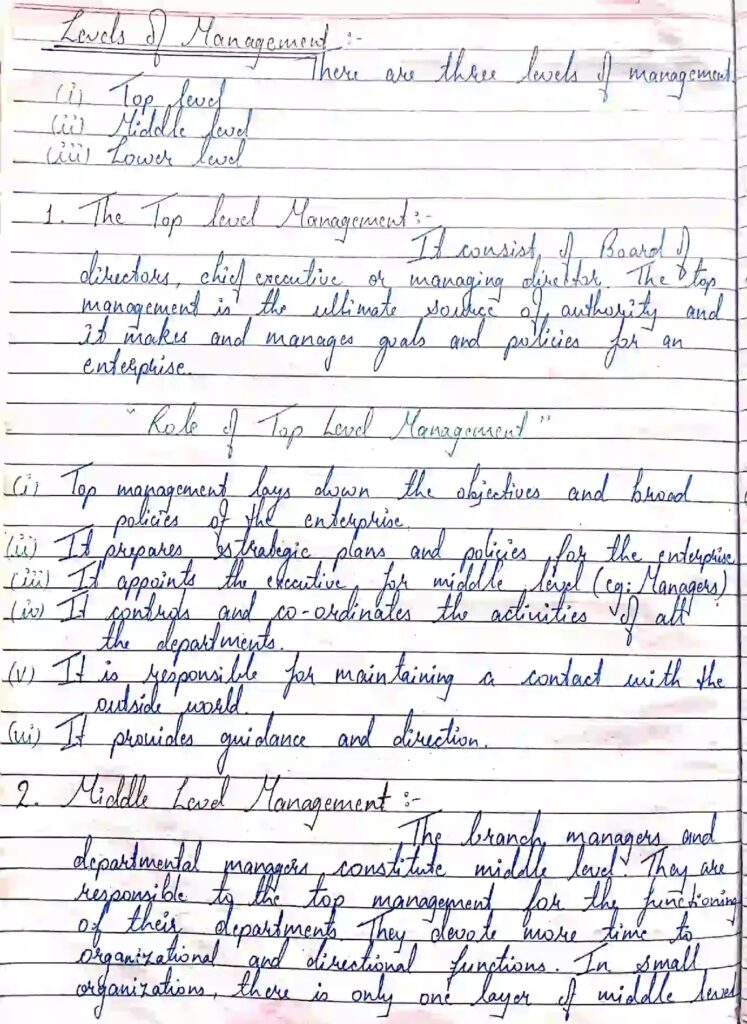 Levels of Management :-
There are three levels of management.
(i) Top level
(ii) Middle level
(iii) Lower level
1. The Top level Management:-
It consist of Board of
directors, chief executive or managing director. The top
management is the ultimate source of authority and
it makes and manages goals and policies for an
enterprise.
"Role of Top Level Management"
(i) Top management lays down the objectives and broad
policies of the enterprise.
(ii) It prepares strategic plans and policies for the enterprise
(iii) It appoints the executive for middle level (eg: Managers)
(iv) It controls and co-ordinates the activities of all
the departments.
(v) It is responsible for maintaining a contact with the
outside world.
(vi) It provides guidance and direction.
2. Middle Level Management :-
The branch managers and
departmental managers constitute middle level. They are
responsible to the top management for the functioning
of their departments. They devote more time to
organizational and directional functions. In small
organizations, there is only one layer of middle level